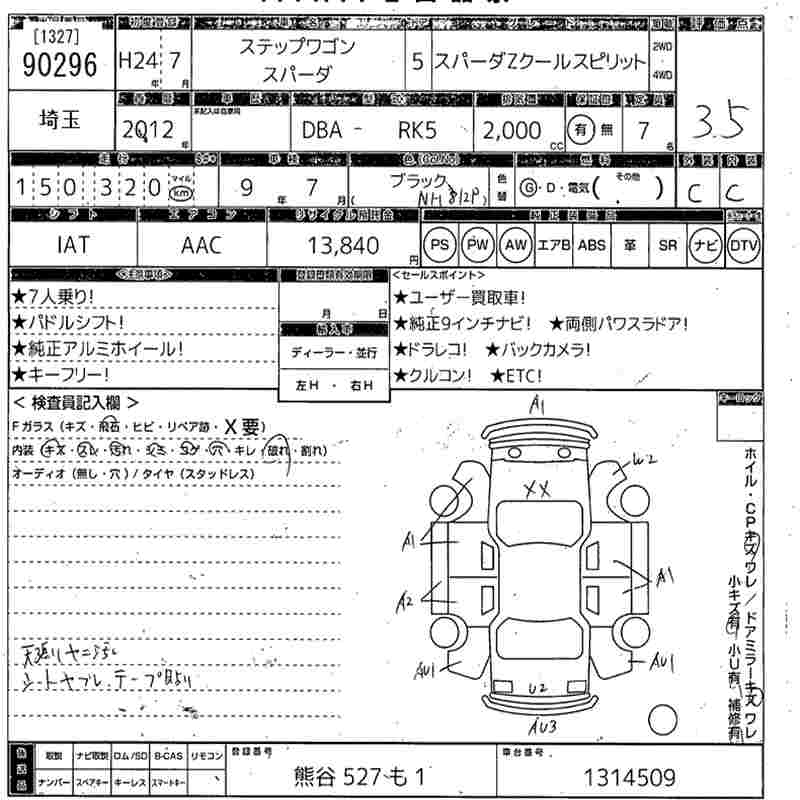 [1327]
90296
埼玉
初度登録
H24 7
年 月
車名
ステップワゴン
スパーダ
5
スパーダZクールスピリット
2WD
4WD
評価点
3.5
2012
年
車歴
未記入は自家用
型式
DBA - RK5
排気量
2,000
CC
有 無
定員
7
名
走行
150320
マイル
km
車検
9 年 7 月
ブラック
(NH812P)
色替
燃料
G・D・電気( その他 )
外装
C
内装
C
シフト
IAT
エアコン
AAC
リサイクル預託金
13,840
円
純正装備品
PS PW AW エアB ABS 革 SR ナビ DTV
<注意事項>
★7人乗り!
★パドルシフト!
★純正アルミホイール!
★キーフリー!
登録書類有効期限
月 日
輸入車
ディーラー・並行
左H ・ 右H
<セールスポイント>
★ユーザー買取車!
★純正9インチナビ! ★両側パワスラドア!
★ドラレコ! ★バックカメラ!
★クルコン! ★ETC!
< 検査員記入欄 >
Fガラス (キズ・飛石・ヒビ・リペア跡・X要)
内装 (キズ・スレ・汚れ・シミ・コゲ・穴・キレ・破れ・割れ)
オーディオ (無し・穴) / タイヤ (スタッドレス)
キーロック
A1
U2
XX
A1
A1
A2
AU1
AU1
U2
AU3
ホイル・CPキズワレ/ドアミラーキズワレ
小キズ有 小U有 補修有
シートヤブレ テープ
後送品
取説 ナビ取説 ロム/SD B-CAS リモコン
ナンバー スペアキー キーレス スマートキー
登録番号
熊谷 527 も 1
車台番号
1314509